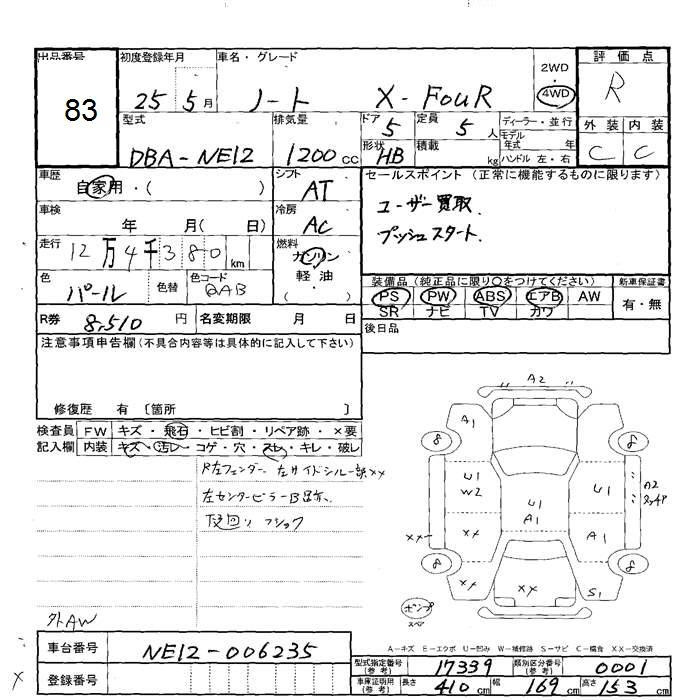 出品番号 初度登録年月 車名・グレード 2WD・4WD 評価点
83 25年5月 ノート X-FOUR R
型式 排気量 ドア 5 定員 5人 ディーラー・並行 外装 内装
DBA-NE12 1200cc 形状 HB 積載 kg モデル年式 年 C C
ハンドル 左・右
車歴 自家用・( ) シフト AT セールスポイント(正常に機能するものに限ります)
車検 年 月( 日) 冷房 AC ユーザー買取
走行 12万4千380km 燃料 ガソリン プッシュスタート
軽油
( )
色 パール 色替 色コード QAB 装備品(純正品に限り○をつけてください) 新車保証書
PS PW ABS エアB AW 有・無
R券 8,510円 名変期限 月 日 SR ナビ TV カワ
後日品
注意事項申告欄(不具合内容等は具体的に記入して下さい)
修復歴 有 〔箇所 〕
検査員 FW キズ・飛石・ヒビ割・リペア跡・×要
記入欄 内装 キズ・汚レ・コゲ・穴・スレ・キレ・破レ
R左フェンダー 左サイドシル一部××
左センターピラー
下回り
外AW
A2
A1
8 8
U1 U1 A2
W2 U1
A1
×× ×× A1
8 8
×× ×× S1
A-キズ E-エクボ U-凹み W-補修跡 S-サビ C-腐食 XX-交換済
車台番号 NE12-006235
型式指定番号(参考) 17339 類別区分番号(参考) 0001
登録番号 車庫証明用(参考) 長さ 410cm 幅 169cm 高さ 153cm
×